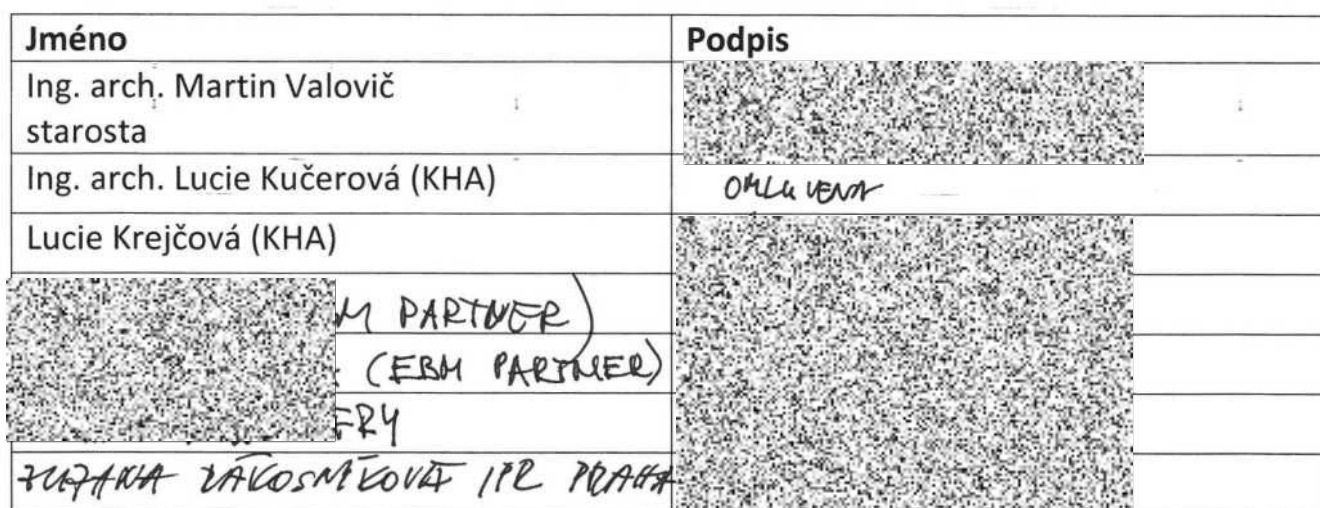 Jméno Podpis
Ing. arch. Martin Valovič
starosta
Ing. arch. Lucie Kučerová (KHA) OMLUVENA
Lucie Krejčová (KHA)
M PARTNER)
(EBM PARTNER)
ERY
ZUZANA RÁKOSNÍKOVÁ IPR PRAHA